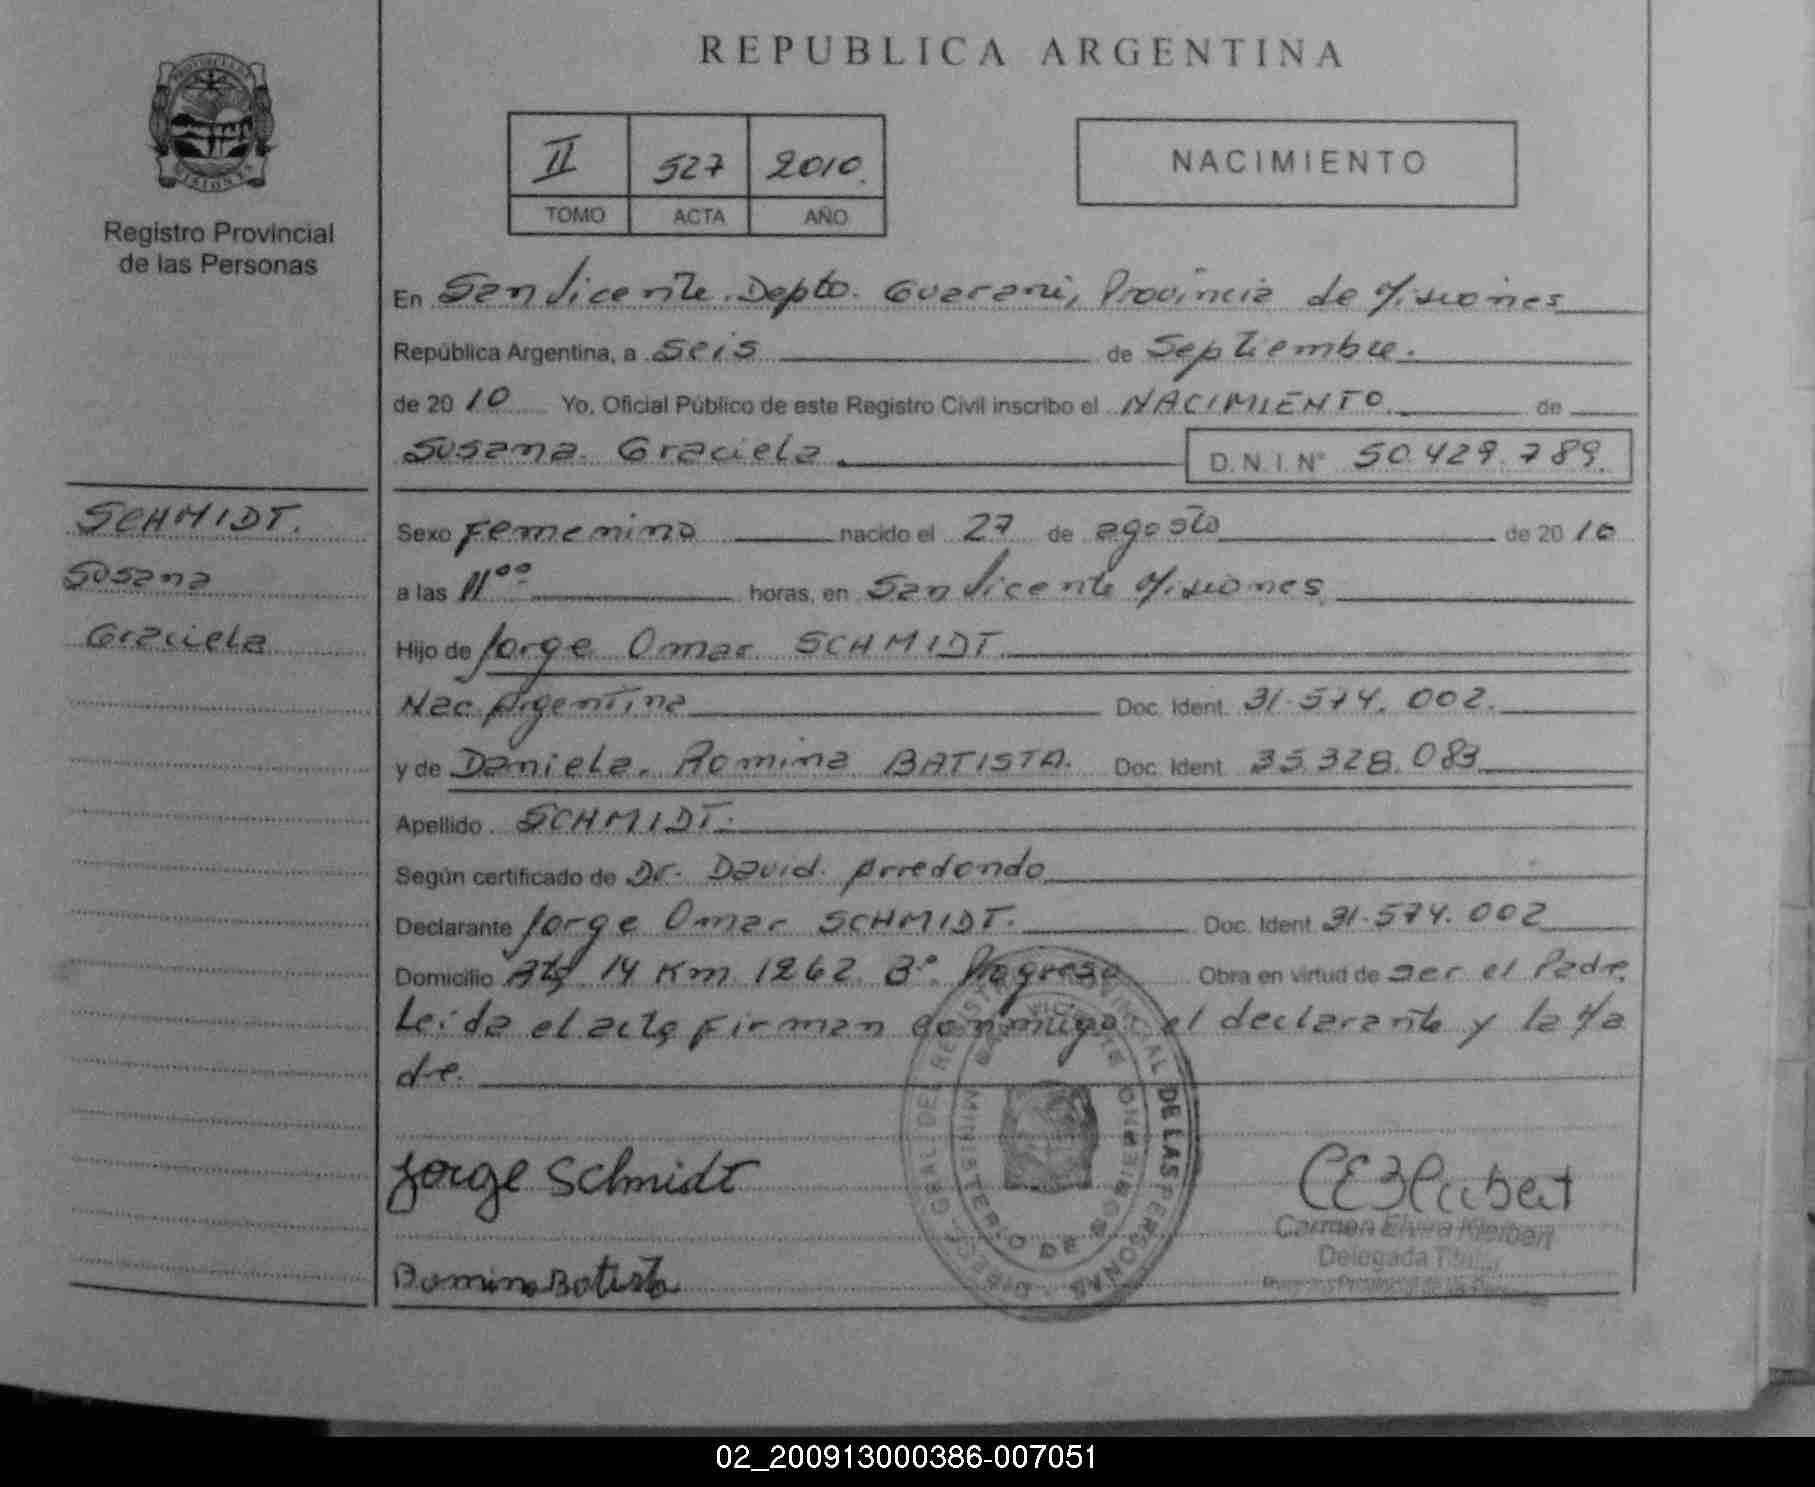 REPUBLICA ARGENTINA
PROVINCIA DE
MISIONES
Registro Provincial
de las Personas
II 527 2010.
TOMO ACTA AÑO
NACIMIENTO
En San Vicente. Depto. Guarani, Provincia de Misiones
República Argentina, a Seis de Septiembre.
de 2010 Yo, Oficial Público de este Registro Civil inscribo el NACIMIENTO de
Susana Graciela D.N.I. N° 50.429.789.
SCHMIDT.
Susana
Graciela
Sexo Femenino nacido el 27 de agosto de 2010
a las 11°° horas, en San Vicente Misiones
Hijo de Jorge Omar SCHMIDT
Nac. Argentina Doc. Ident. 31.574.002.
y de Daniela Romina BATISTA. Doc. Ident. 35.328.083
Apellido SCHMIDT.
Según certificado de Dr. David Arredondo
Declarante Jorge Omar SCHMIDT. Doc. Ident. 31.574.002
Domicilio 14 Km 1262 B° Progreso Obra en virtud de ser el Padre
Leida el acta firman conmigo el declarante y la Ma
dre.
DEL REGISTRO PROVINCIAL DE LAS PERSONAS
MINISTERIO DE GOBIERNO
SAN VICENTE
Jorge Schmidt
Romina Batista
CEKleibert
Carmen Elvira Kleibert
Delegada Titular
Registro Provincial de las Personas
02_200913000386-007051